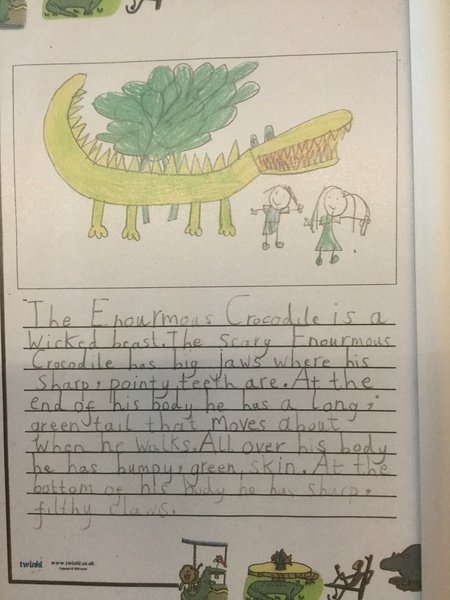 The Enourmous Crocodile is a
wicked beast. The scary Enourmous
Crocodile has big jaws where his
sharp, pointy teeth are. At the
end of his body he has a long,
green tail that moves about
when he walks. All over his body
he has bumpy, green, skin. At the
bottom of his body he has sharp,
filthy claws.
twinkl www.twinkl.co.uk